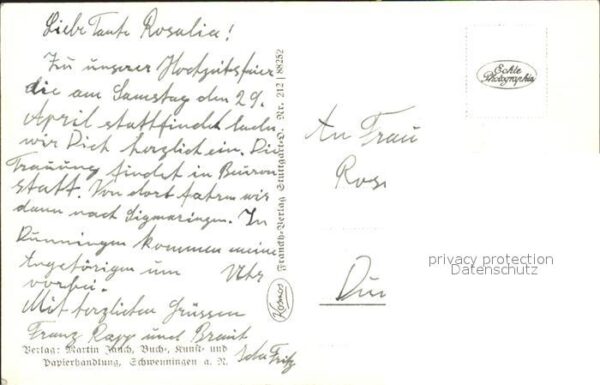 Liebe Tante Rosalia!
Zu unserer Hochzeitsfeier
die am Samstag den 29.
April stattfindet laden
wir Dich herzlich ein. Die
Trauung findet in Beuron
statt. Von dort fahren wir
dann nach Sigmaringen. In
Dunningen kommen meine
Angehörigen um Uhr
vorbei.
Mit herzlichen Grüssen
Franz Rapp und Braut
Ida Fritz
Verlag: Martin Jauch, Buch-, Kunst- und
Papierhandlung, Schwenningen a. N.
Franckh-Verlag Stuttgart-O. Nr. 212 / 88252
Kosmos
Echte
Photographie
An Frau
Ros
Dun
privacy protection
Datenschutz